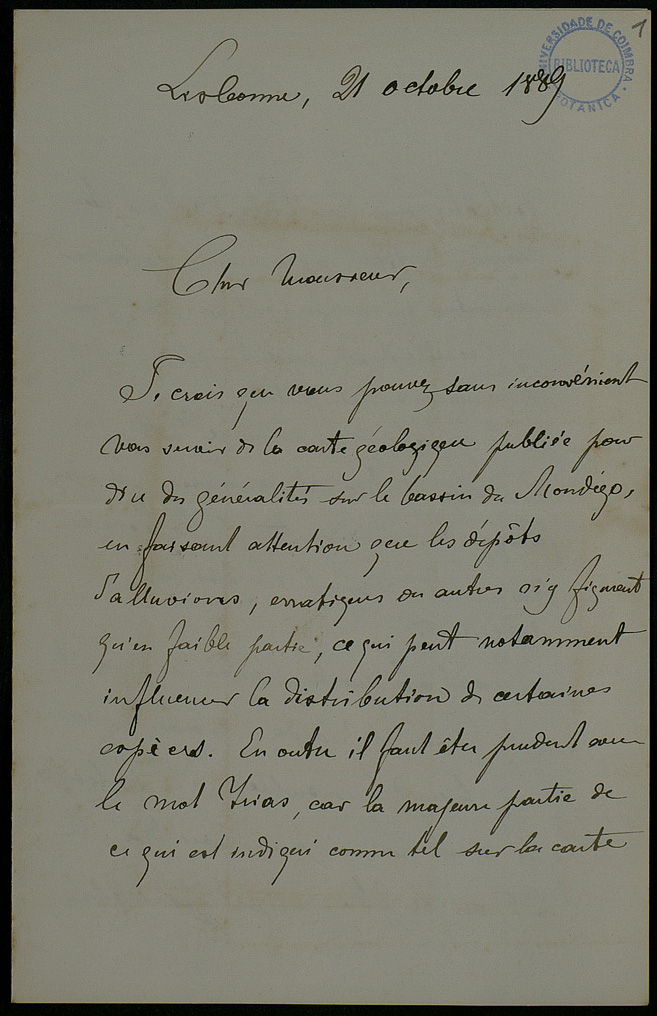 1
UNIVERSIDADE DE COIMBRA
BIBLIOTECA
BOTANICA
Lisbonne, 21 octobre 1889
Cher Monsieur,
Je crois que vous pouvez sans inconvénient
vous servir de la carte géologique publiée pour
dire des généralités sur le bassin du Mondégo,
en faisant attention que les dépôts
d'alluvions, erratiques ou autres n'y figurent
qu'en faible partie, ce qui peut notamment
influencer la distribution de certaines
espèces. En outre il faut être prudent avec
le mot Trias, car la majeure partie de
ce qui est indiqué comme tel sur la carte